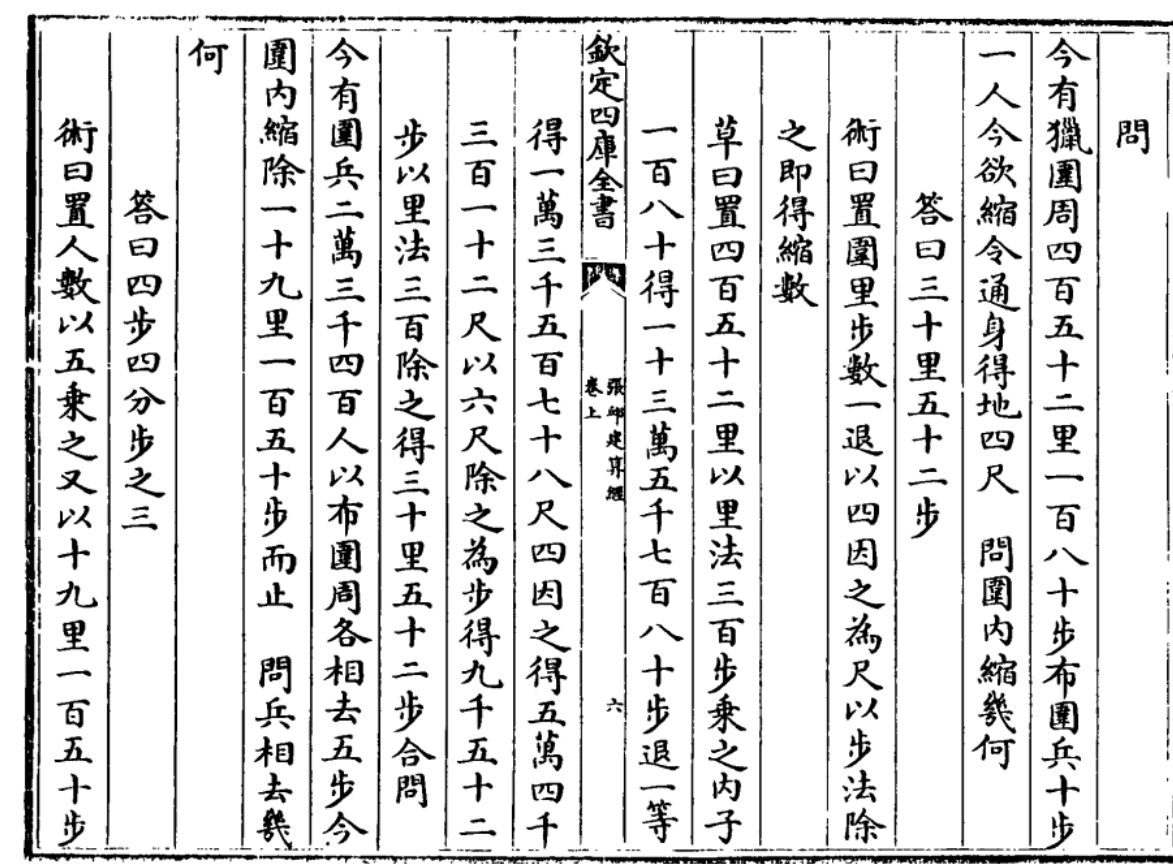 問
今有獵圍周四百五十二里一百八十步布圍兵十步
一人今欲縮令通身得地四尺　問圍内縮幾何
答曰三十里五十二步
術曰置圍里步數一退以四因之為尺以步法除
之即得縮數
草曰置四百五十二里以里法三百步乘之内子
一百八十得一十三萬五千七百八十步退一等
欽定四庫全書
張邱建算經
卷上
六
得一萬三千五百七十八尺四因之得五萬四千
三百一十二尺以六尺除之為步得九千五十二
步以里法三百除之得三十里五十二步合問
今有圍兵二萬三千四百人以布圍周各相去五步今
圍内縮除一十九里一百五十步而止　問兵相去幾
何
答曰四步四分步之三
術曰置人數以五乘之又以十九里一百五十步